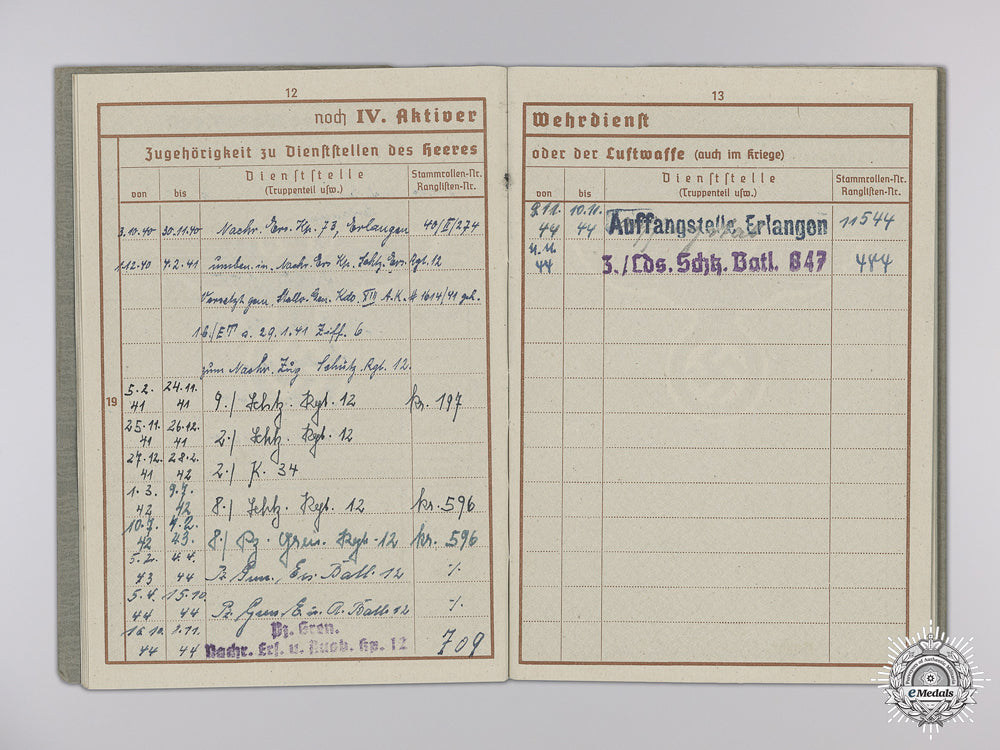 12
noch IV. Aktiver
Zugehörigkeit zu Dienststellen des Heeres
von bis Dienststelle (Truppenteil usw.) Stammrollen-Nr. Ranglisten-Nr.
3.10.40 30.11.40 Nachr. Ers. Kp. 73, Erlangen 40/II/274
1.12.40 4.2.41 umben. in Nachr. Ers Kp. Schtz. Ers. Rgt. 12
Versetzt gem. Stellv. Gen. Kdo. XIII A.K. # 1614/41 geh.
Ib/ET a. 29.1.41 Ziff. 6
zum Nachr. Zug Schütz. Rgt. 12.
19
5.2. 41 24.11. 41 9./ Schtz. Rgt. 12 kr. 197
25.11. 41 26.12. 41 2./ Schtz. Rgt. 12
27.12. 41 28.2. 42 2./ K. 34
1.3. 42 9.7. 42 8./ Schtz. Rgt. 12 kr. 596
10.7. 42 4.2. 43. 8./ Pz. Gren. Regt. 12 kr. 596
5.2. 43 4.4. 44 Pz. Gren. Ers. Batl. 12 -/.
5.4. 44 15.10. 44 Pz. Gren. E. u. A. Batl. 12 -/.
16.10. 44 44 Pz. Gren. Nachr. Ers. u. Ausb. Kp. 12 709
13
Wehrdienst
oder der Luftwaffe (auch im Kriege)
von bis Dienststelle (Truppenteil usw.) Stammrollen-Nr. Ranglisten-Nr.
9.11. 44 10.11. 44 Auffangstelle Erlangen 11544
11.11. 44 3./Lds. Schtz. Batl. 847 484
Purveyors of Authentic Militaria
eMedals